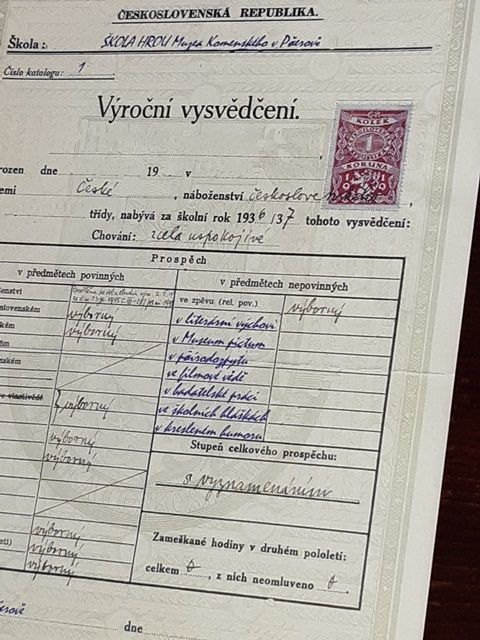 ČESKOSLOVENSKÁ REPUBLIKA.
Škola: ŠKOLA HROU Muzea Komenského v Přerově
Číslo katalogu: 1
Výroční vysvědčení.
KOLEK
1
KORUNA
rozen dne 19 v
zemi České, náboženství českoslove
třídy, nabývá za školní rok 1936/37 tohoto vysvědčení:
Chování: zcela uspokojivé
Prospěch
v předmětech povinných
v předmětech nepovinných
výborný
ve zpěvu (rel. pov.) výborný
výborný
v literární výchově
v Museum pictum
v přírodozpytu
ve filmové vědě
v badatelské práci
výborný
ve školních hláškách
v kresleném humoru
výborný
výborný
Stupeň celkového prospěchu:
s vyznamenáním
výborný
výborný
výborný
Zameškané hodiny v druhém pololetí:
celkem 0, z nich neomluveno 0.
dne